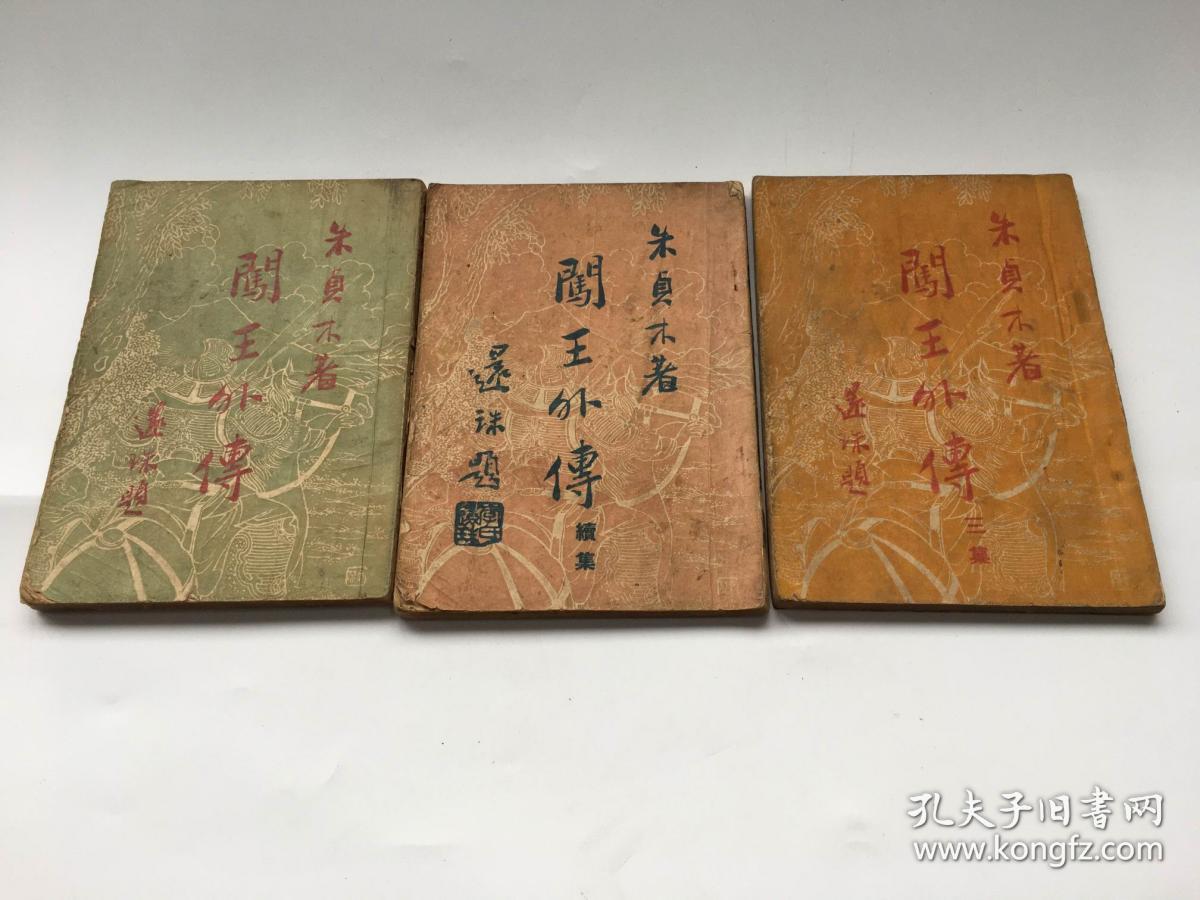 朱貞木著
闖王外傳
還珠題
朱貞木著
闖王外傳
續集
還珠題
朱貞木著
闖王外傳
三集
還珠題
孔夫子旧书网
www.kongfz.com